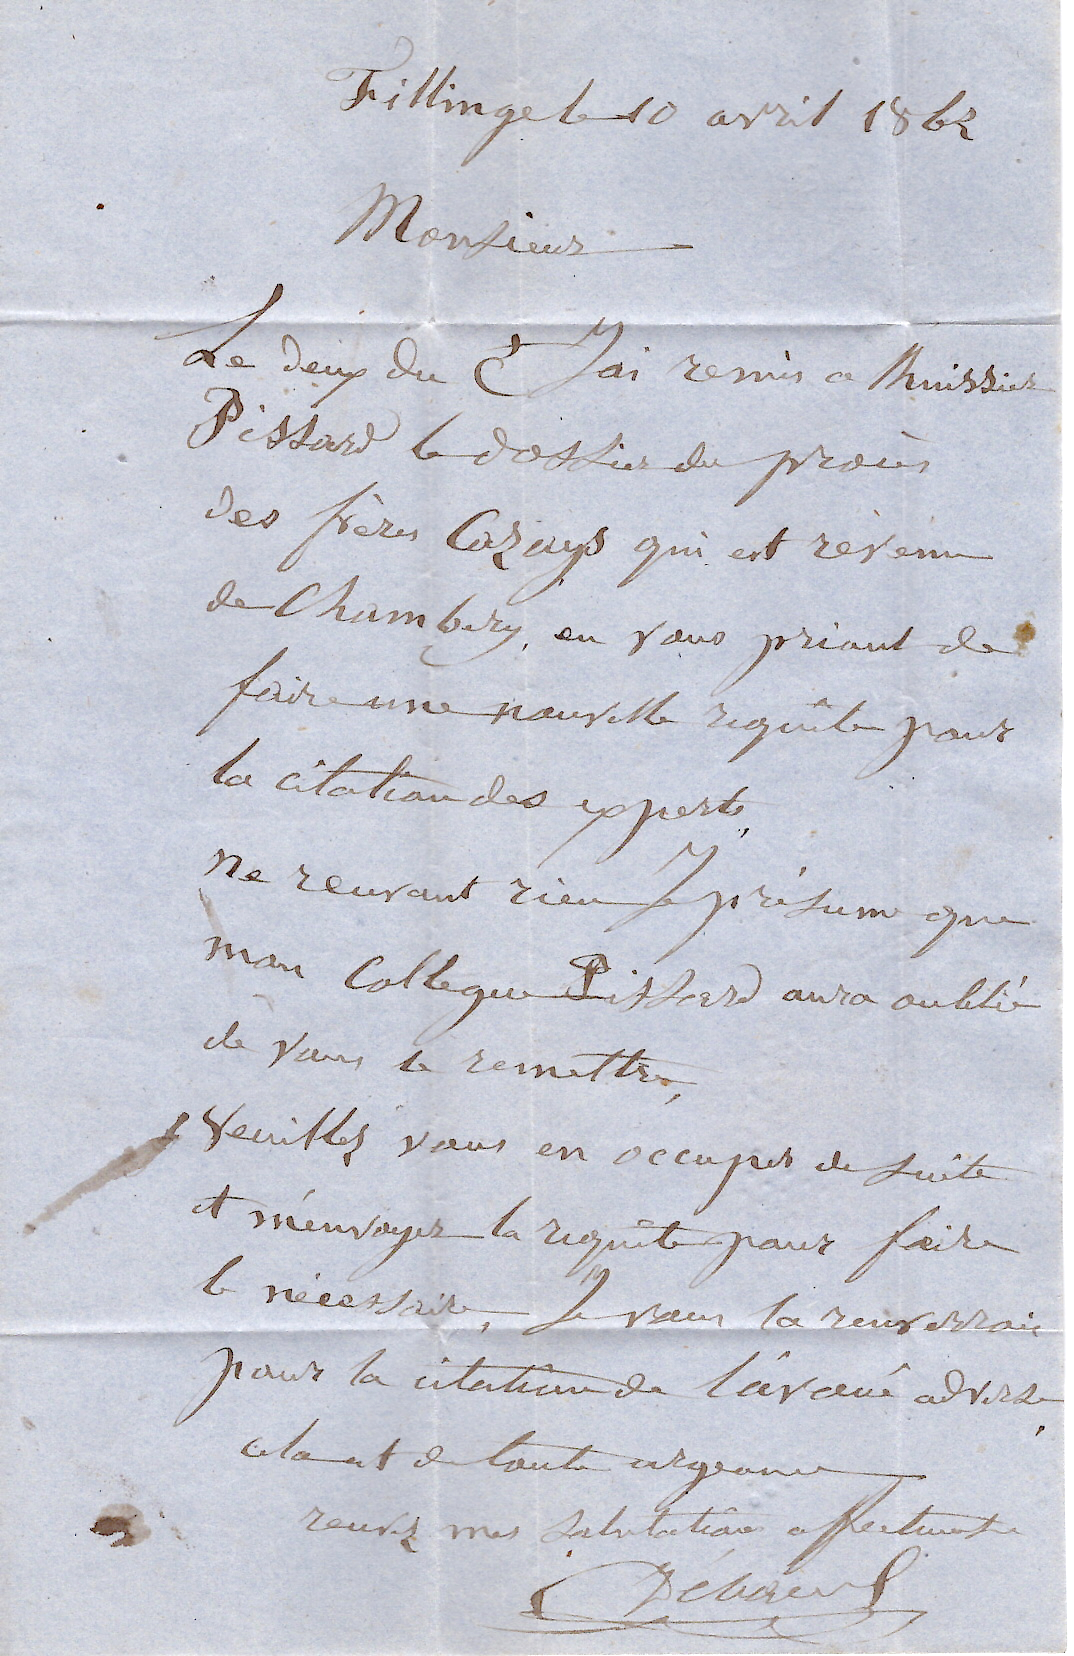 Fillinge le 10 avril 1862
Monsieur
Le deux du Ct Jai remis a lhuissier
Pissard le dossier du procès
des frères Cazays qui est revenu
de Chambery, en vous priant de
faire une nouvelle requête pour
la citation des experts,
ne recevant rien Je présume que
mon Collegue Pissard aura oublié
de vous le remettre,
Veuillez vous en occuper de suite
et m'envoyer la requête pour faire
le nécessaire, Je vous la renverrai
pour la citation de l'avoué adverse,
cela est de toute urgeance
recevez mes salutations affectueuses